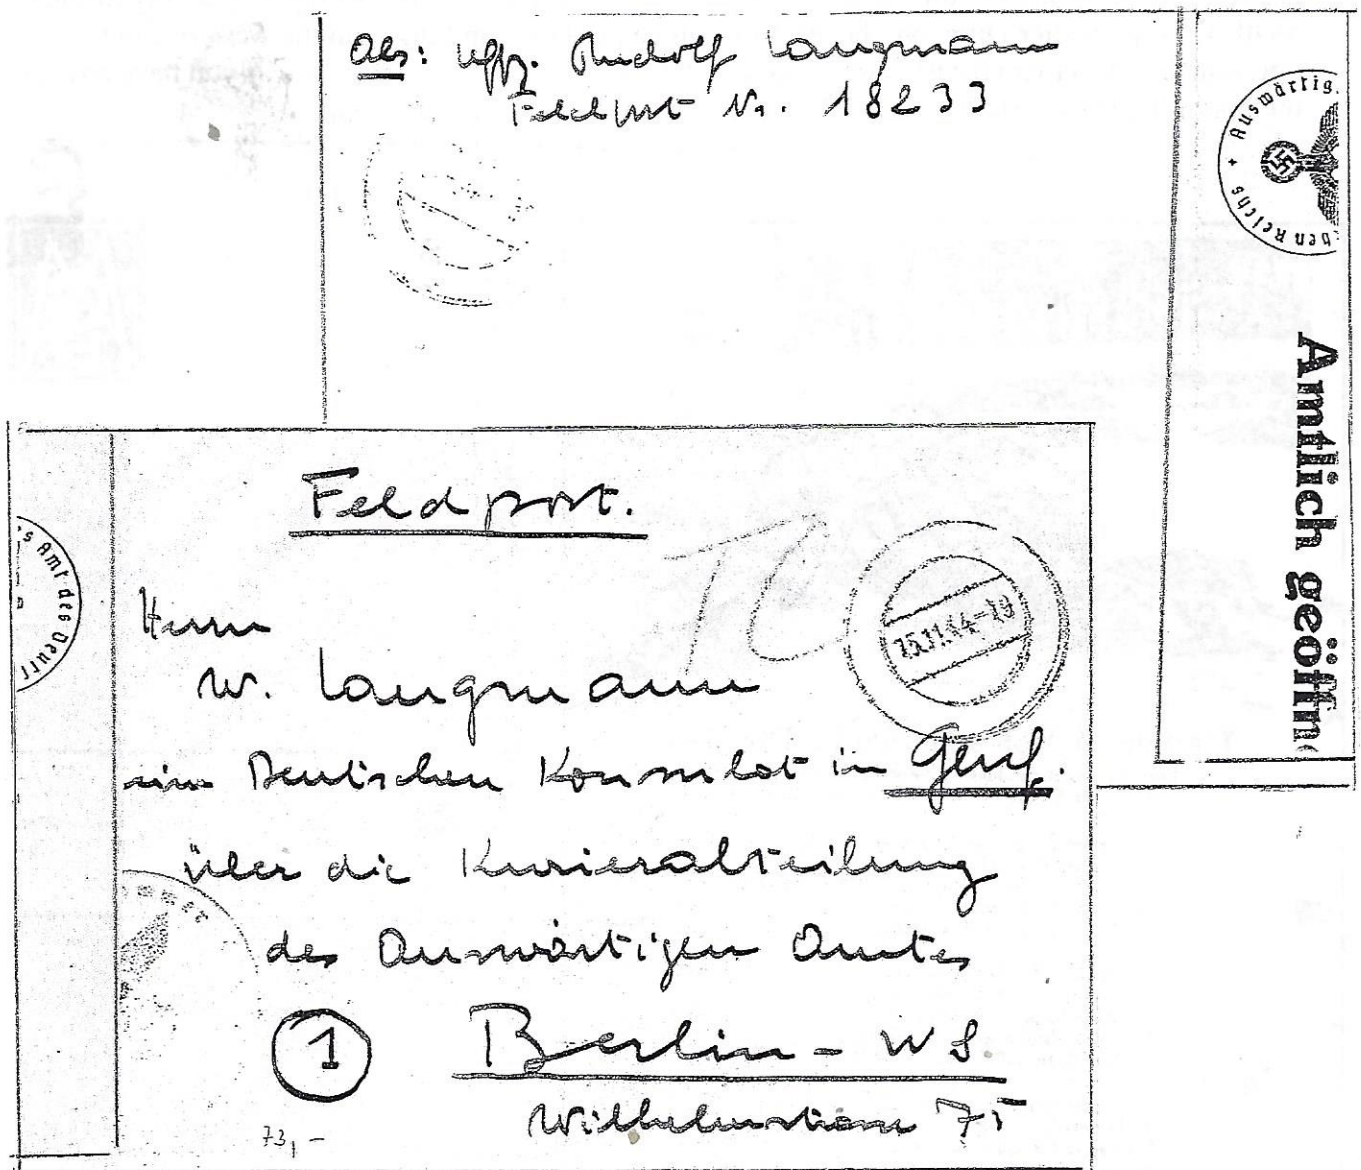 Abs: Uffz. Rudolf Langmann
Feldpost Nr. 18233
Auswärtig
hen Reichs +
Amtlich geöffn
Feldpost.
s Amt des Deut
15.11.44-19
Herrn
W. Langmann
im Deutschen Konsulat in Genf.
über die Kurierabteilung
des Auswärtigen Amtes
1 Berlin - W 8.
Wilhelmstrasse 75
73,-